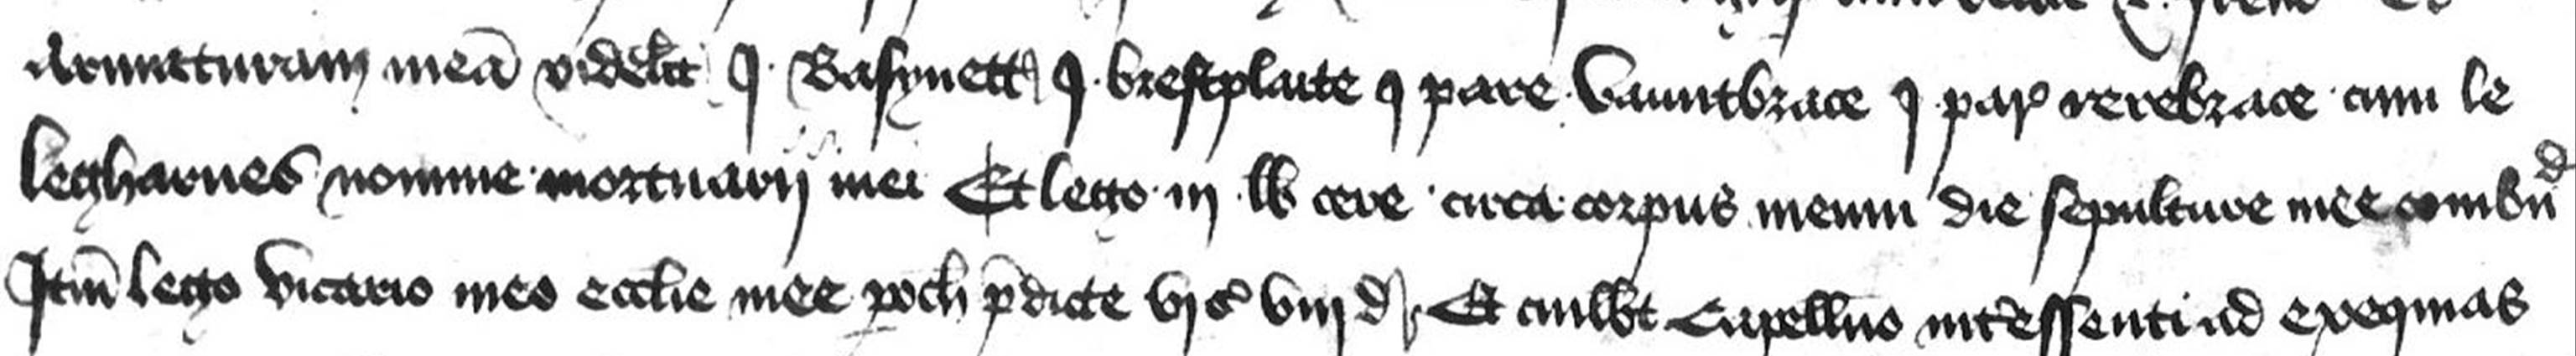 Armaturam meā videlt j. Basynett j. brestplaite j pare vauntbrace j par rerebrace cum le
legharnes nomine mortuarij mei Et lego iij lb cere circa corpus meum die sepulture mee combuᵈ
Itm̄ lego vicario meo ecclie mee poch p̄dicte vjs viijd Et cuilbt Capellno int̄essenti ad exequias